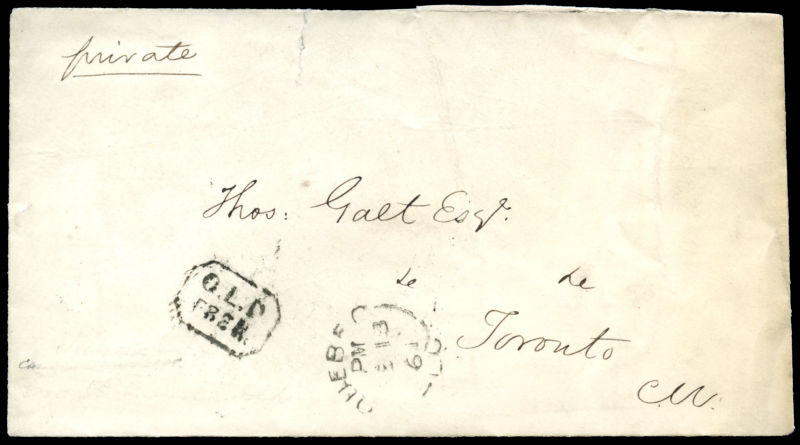 private
Thos: Galt Esqr.
&c &c
Toronto
C.W.
O.L.D
FREE.
QUEBEC
PM
13
61